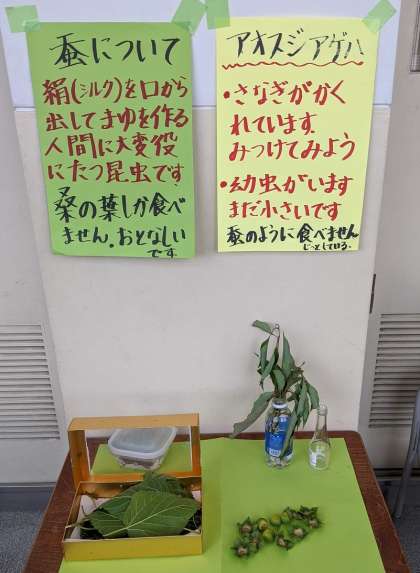 蚕について
絹(シルク)を口から
出してまゆを作る
人間に大変役
にたつ昆虫です
桑の葉しか食べ
ません。おとなしい
です.
アオスジアゲハ
・さなぎがかく
れています.
みつけてみよう
・幼虫がいます
まだ小さいです
蚕のように食べません
じっとしている.